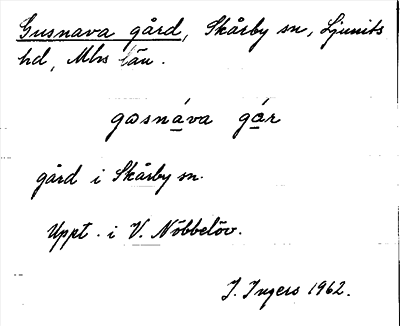 Gusnava gård, Skårby sn, Ljunits
hd, Mlhs län.
gɷsnáva gár
gård i Skårby sn.
Uppt. i V. Nöbbelöv.
J. Ingers 1962.